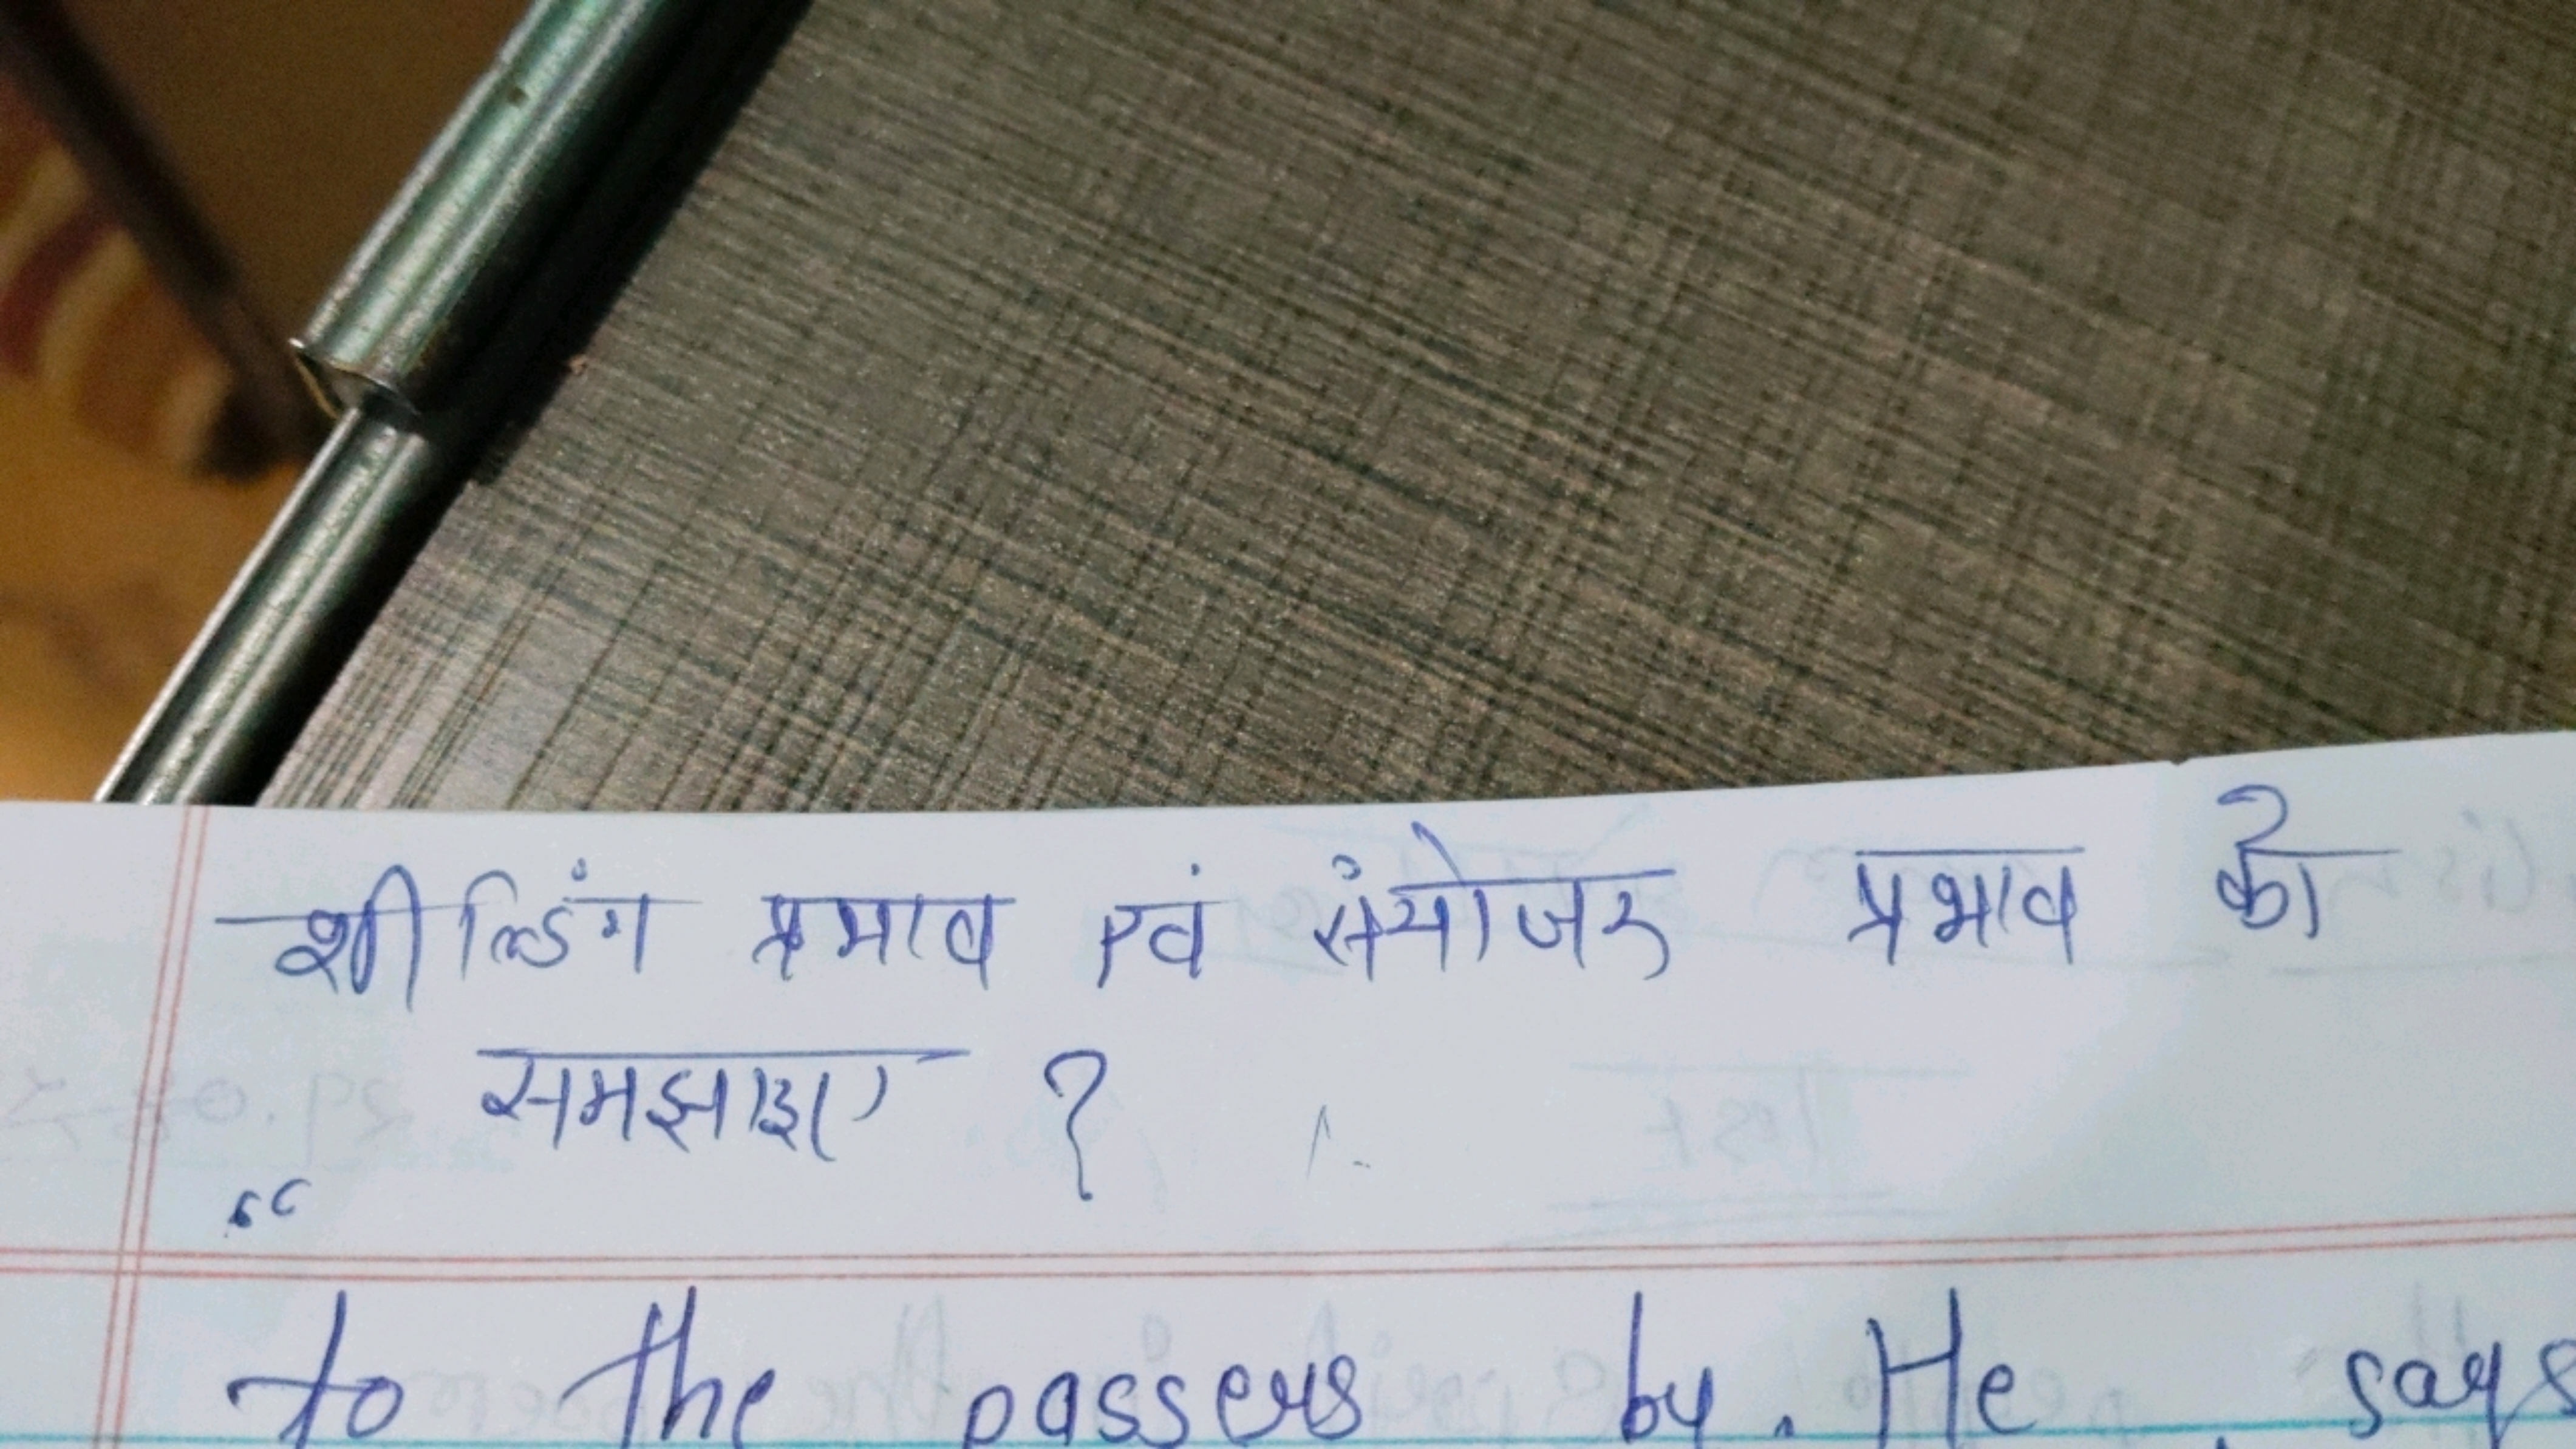 शील्डिंग प्रभाव एवं संयोजन प्रभाव को
समझाइए ?
“
to the passers by. He says